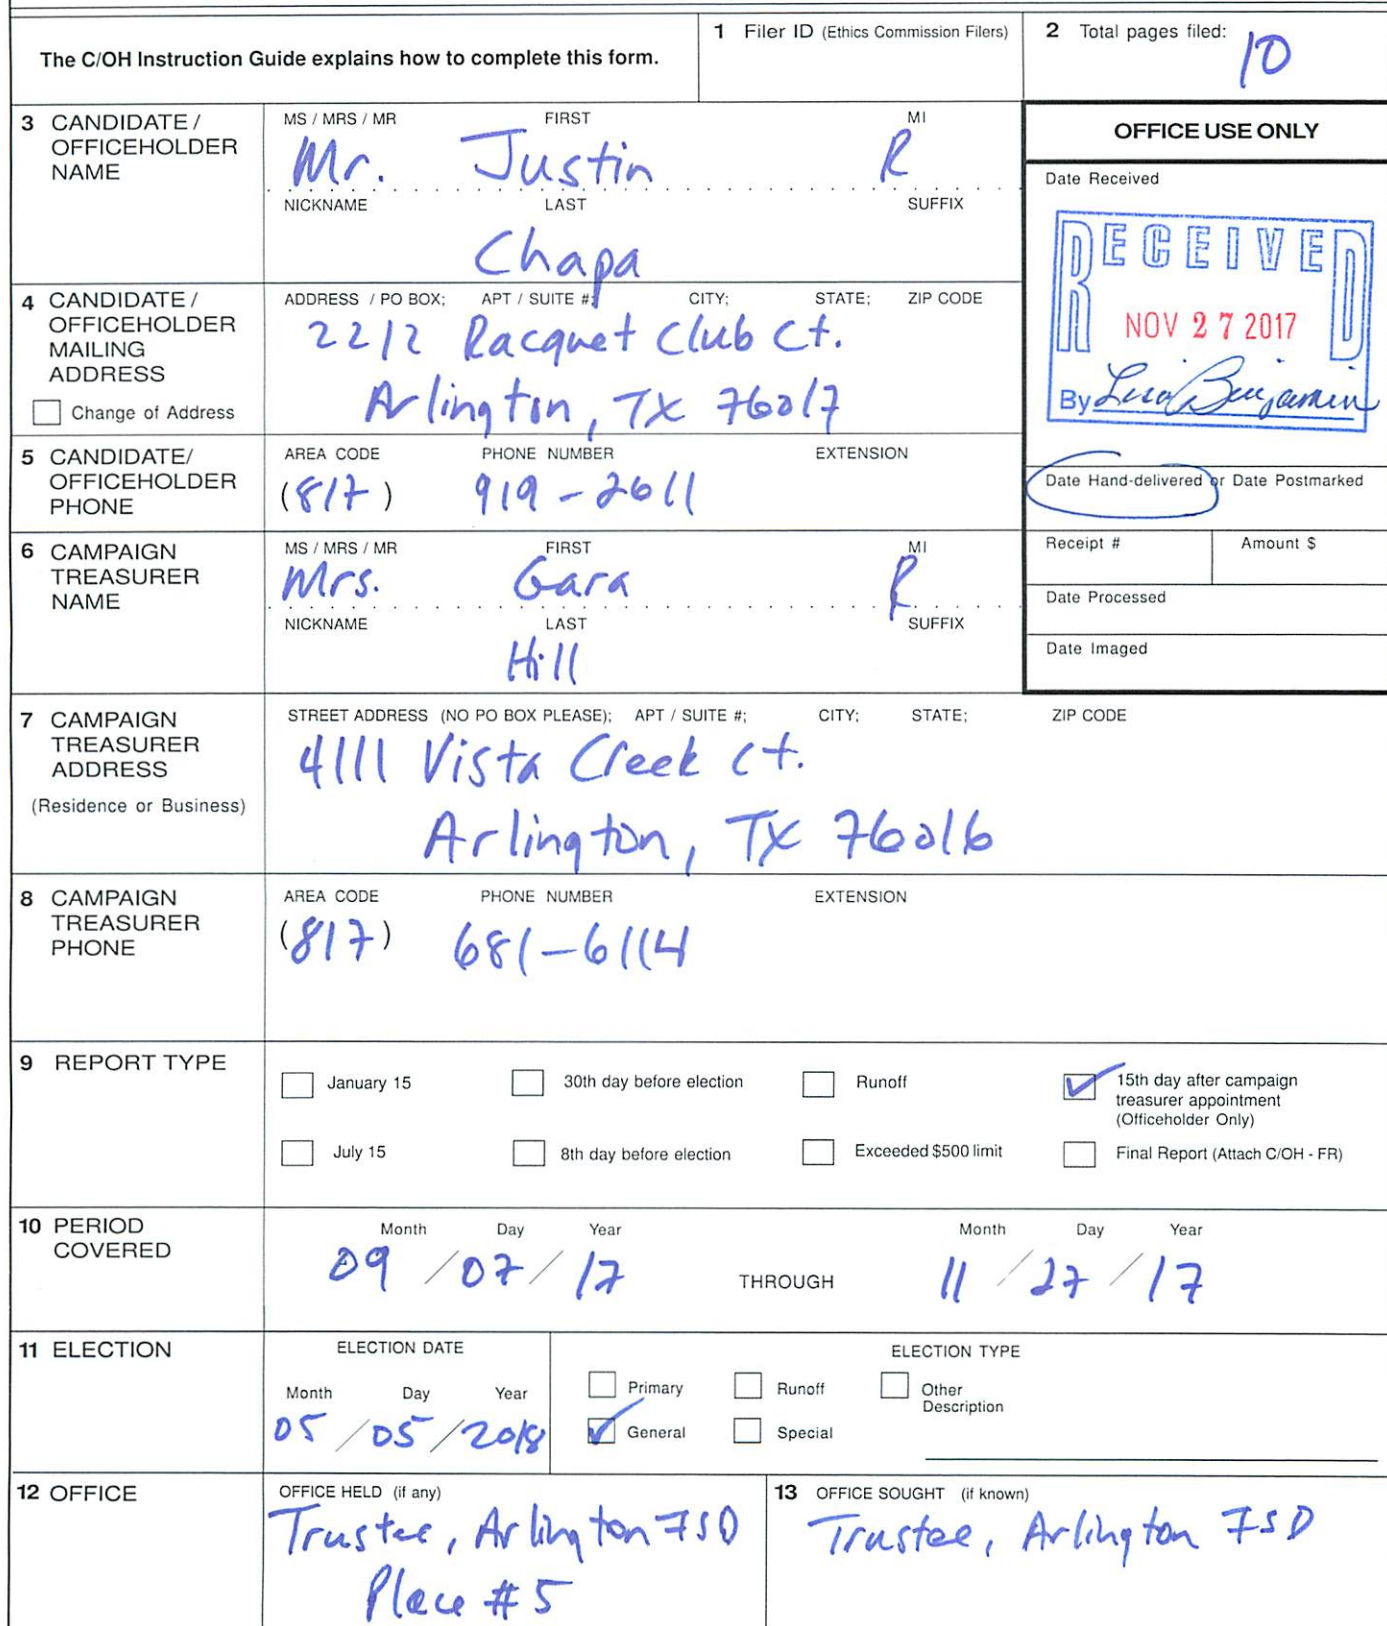 The C/OH Instruction Guide explains how to complete this form.
1 Filer ID (Ethics Commission Filers)
2 Total pages filed:
10
3 CANDIDATE / OFFICEHOLDER NAME
MS / MRS / MR FIRST MI
Mr. Justin R
NICKNAME LAST SUFFIX
Chapa
OFFICE USE ONLY
Date Received
RECEIVED
NOV 27 2017
By Lisa Benjamin
4 CANDIDATE / OFFICEHOLDER MAILING ADDRESS
Change of Address
ADDRESS / PO BOX; APT / SUITE #; CITY; STATE; ZIP CODE
2212 Racquet Club Ct.
Arlington, TX 76017
5 CANDIDATE/ OFFICEHOLDER PHONE
AREA CODE PHONE NUMBER EXTENSION
(817) 919-2611
Date Hand-delivered or Date Postmarked
Receipt # Amount $
Date Processed
Date Imaged
6 CAMPAIGN TREASURER NAME
MS / MRS / MR FIRST MI
Mrs. Gara R
NICKNAME LAST SUFFIX
Hill
7 CAMPAIGN TREASURER ADDRESS
(Residence or Business)
STREET ADDRESS (NO PO BOX PLEASE); APT / SUITE #; CITY; STATE; ZIP CODE
4111 Vista Creek Ct.
Arlington, TX 76016
8 CAMPAIGN TREASURER PHONE
AREA CODE PHONE NUMBER EXTENSION
(817) 681-6114
9 REPORT TYPE
January 15 30th day before election Runoff 15th day after campaign treasurer appointment (Officeholder Only)
July 15 8th day before election Exceeded $500 limit Final Report (Attach C/OH - FR)
10 PERIOD COVERED
Month Day Year Month Day Year
09 / 07 / 17 THROUGH 11 / 27 / 17
11 ELECTION
ELECTION DATE
Month Day Year
05 / 05 / 2018
ELECTION TYPE
Primary Runoff Other Description
General Special
12 OFFICE
OFFICE HELD (if any)
Trustee, Arlington ISD
Place #5
13 OFFICE SOUGHT (if known)
Trustee, Arlington ISD